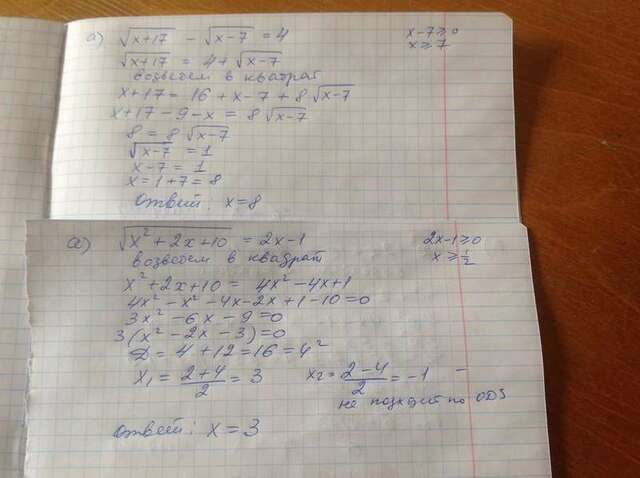 а) √(x+17) - √(x-7) = 4 x-7≥0
√(x+17) = 4+√(x-7) x≥7
возведем в квадрат
x+17 = 16+x-7+8√(x-7)
x+17-9-x = 8√(x-7)
8 = 8√(x-7)
√(x-7) = 1
x-7 = 1
x = 1+7 = 8
Ответ: x=8
а) √(x²+2x+10) = 2x-1 2x-1≥0
возведем в квадрат x≥1/2
x²+2x+10 = 4x²-4x+1
4x²-x²-4x-2x+1-10=0
3x²-6x-9=0
3(x²-2x-3)=0
D = 4+12=16=4²
x₁ = (2+4)/2 = 3 x₂ = (2-4)/2 = -1 -
не подходит по ОДЗ
Ответ: x=3